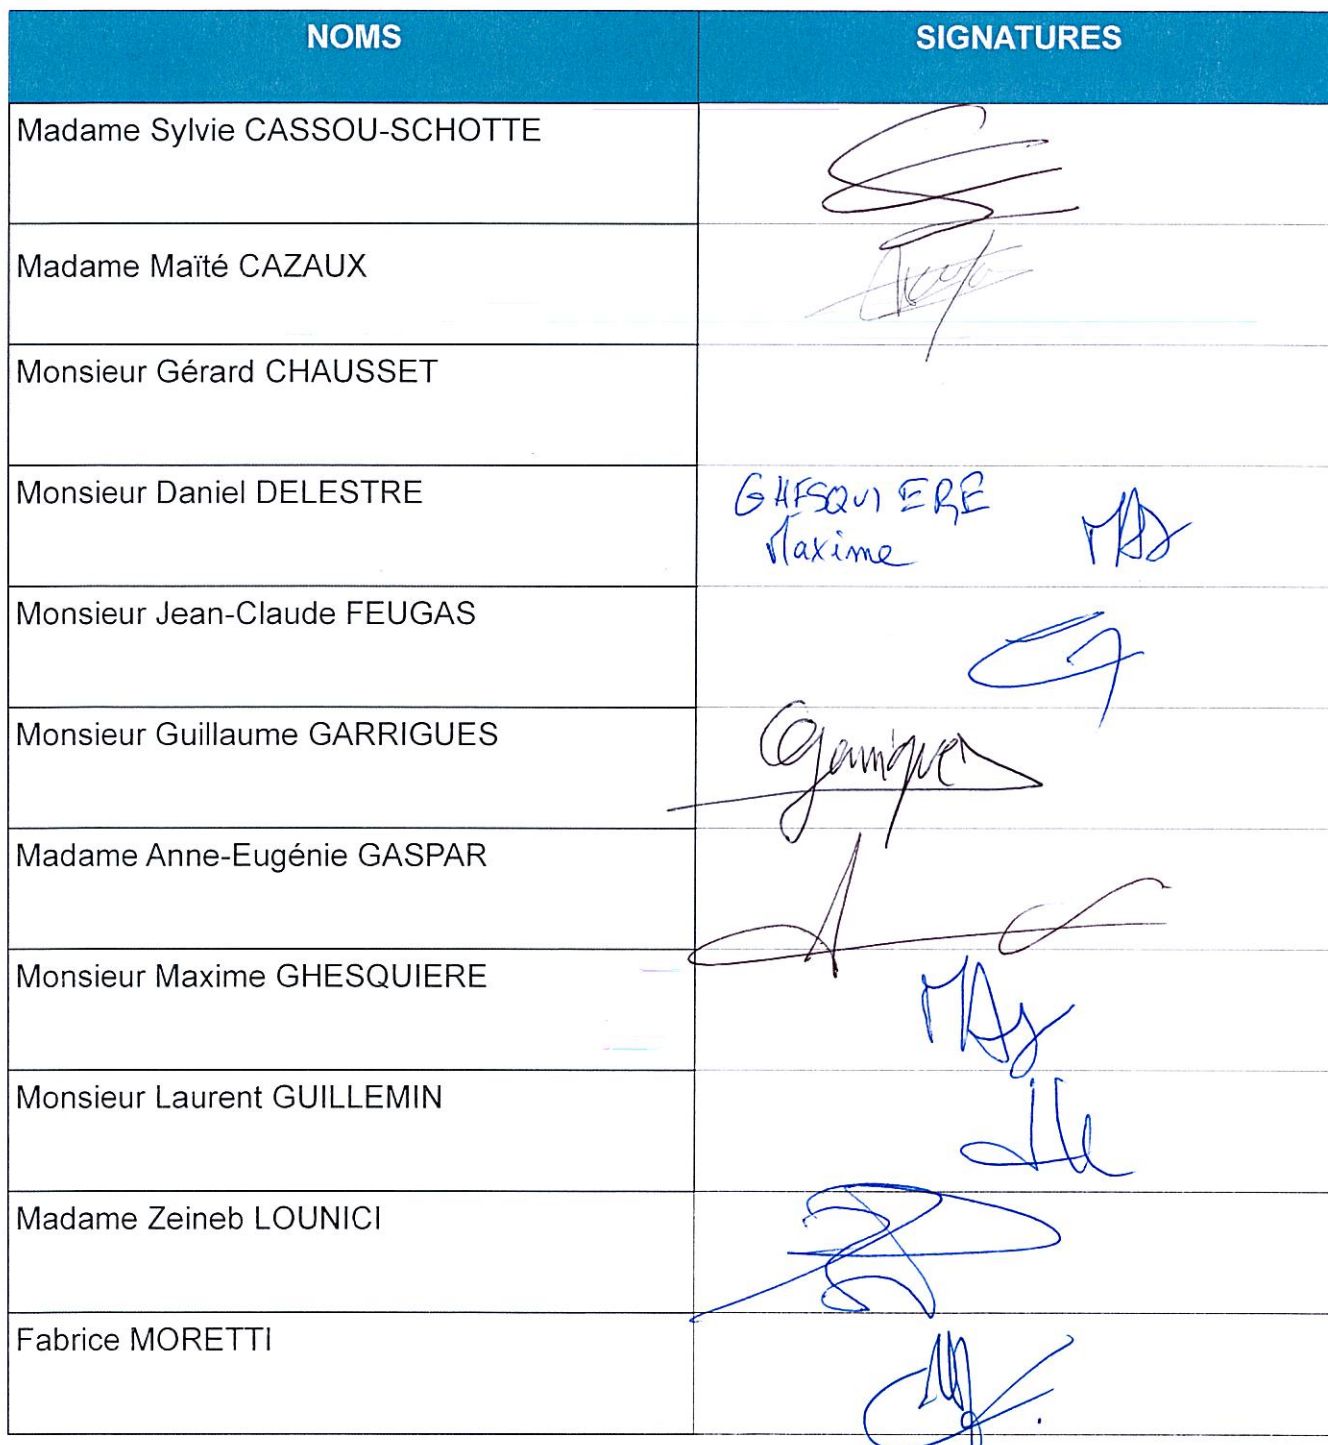 NOMS SIGNATURES
Madame Sylvie CASSOU-SCHOTTE
Madame Maïté CAZAUX
Monsieur Gérard CHAUSSET
Monsieur Daniel DELESTRE GHESQUIERE
Maxime
Monsieur Jean-Claude FEUGAS
Monsieur Guillaume GARRIGUES Garrigues
Madame Anne-Eugénie GASPAR
Monsieur Maxime GHESQUIERE
Monsieur Laurent GUILLEMIN
Madame Zeineb LOUNICI
Fabrice MORETTI